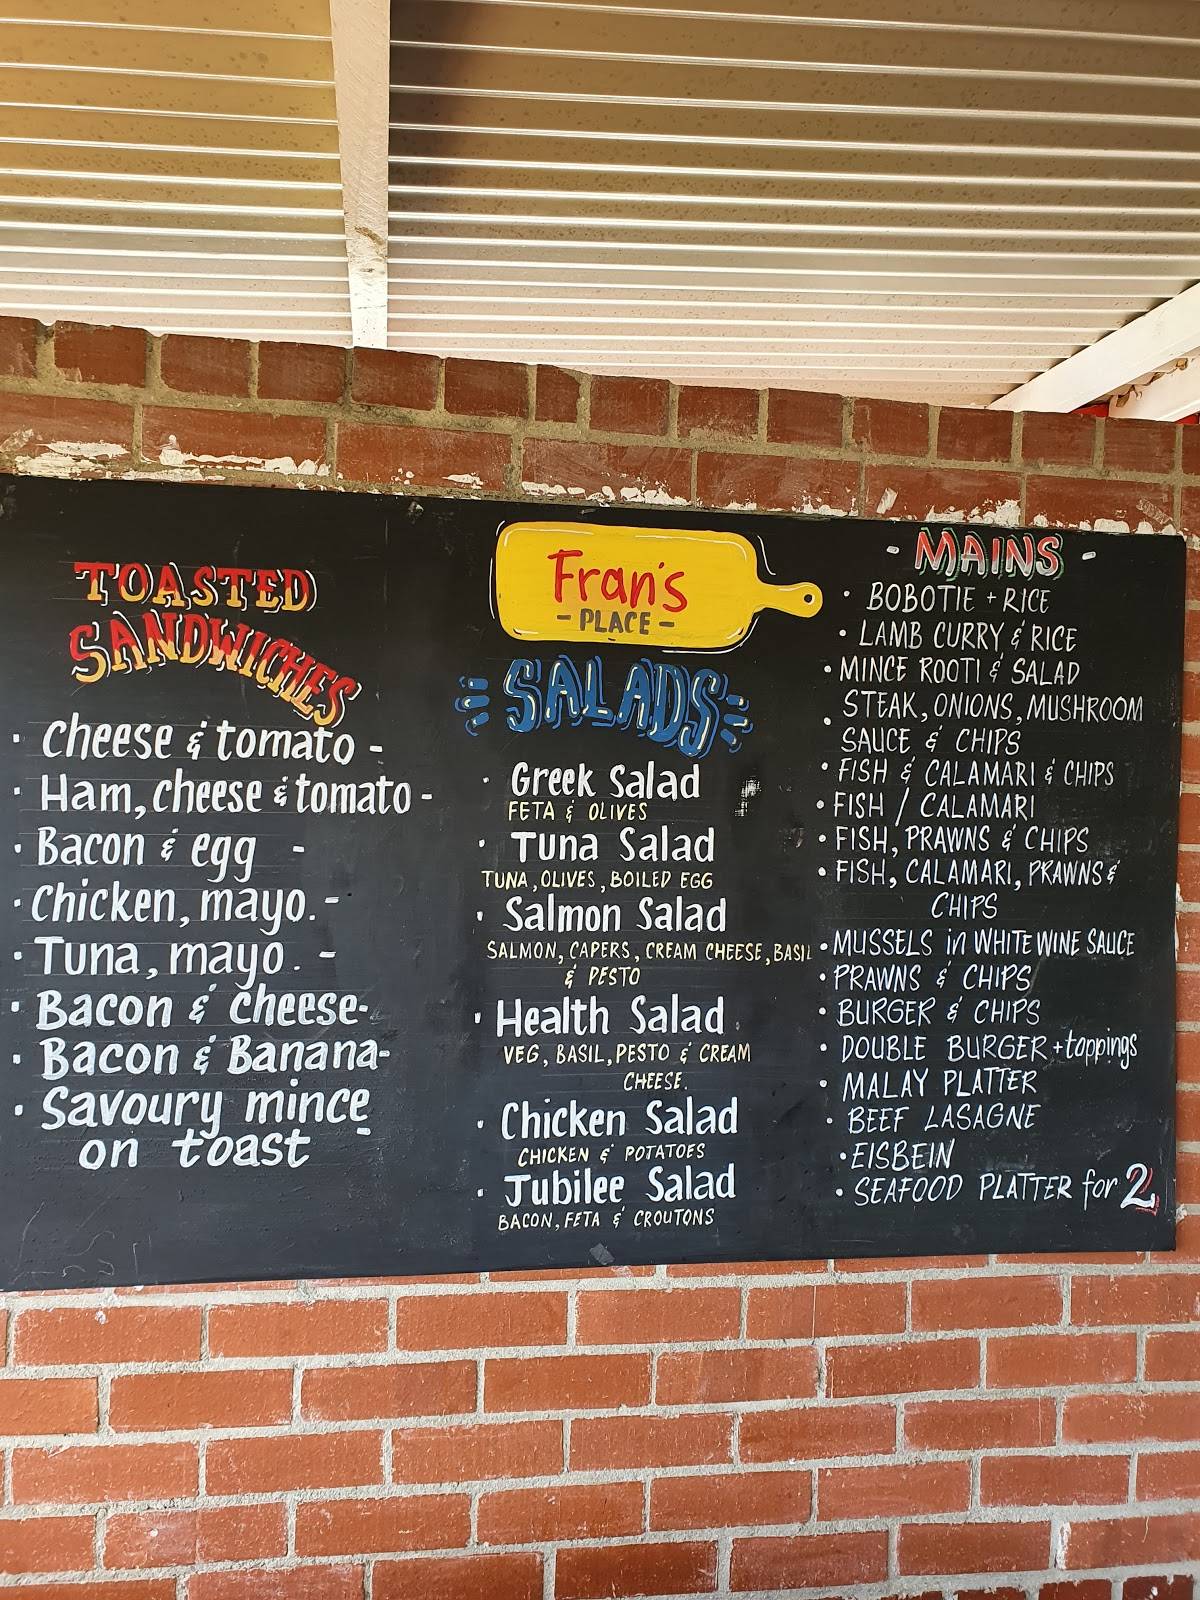 TOASTED
SANDWICHES
· Cheese & tomato -
· Ham, cheese & tomato -
· Bacon & egg -
· Chicken, mayo. -
· Tuna, mayo. -
· Bacon & cheese-
· Bacon & Banana-
· Savoury mince
on toast -
Fran's
- PLACE -
SALADS
· Greek Salad
FETA & OLIVES
· Tuna Salad
TUNA, OLIVES, BOILED EGG
· Salmon Salad
SALMON, CAPERS, CREAM CHEESE, BASIL
& PESTO
· Health Salad
VEG, BASIL, PESTO & CREAM
CHEESE.
· Chicken Salad
CHICKEN & POTATOES
· Jubilee Salad
BACON, FETA & CROUTONS
- MAINS -
· BOBOTIE + RICE
· LAMB CURRY & RICE
· MINCE ROOTI & SALAD
· STEAK, ONIONS, MUSHROOM
SAUCE & CHIPS
· FISH & CALAMARI & CHIPS
· FISH / CALAMARI
· FISH, PRAWNS & CHIPS
· FISH, CALAMARI, PRAWNS &
CHIPS
· MUSSELS in WHITE WINE SAUCE
· PRAWNS & CHIPS
· BURGER & CHIPS
· DOUBLE BURGER + toppings
· MALAY PLATTER
· BEEF LASAGNE
· EISBEIN
· SEAFOOD PLATTER for 2